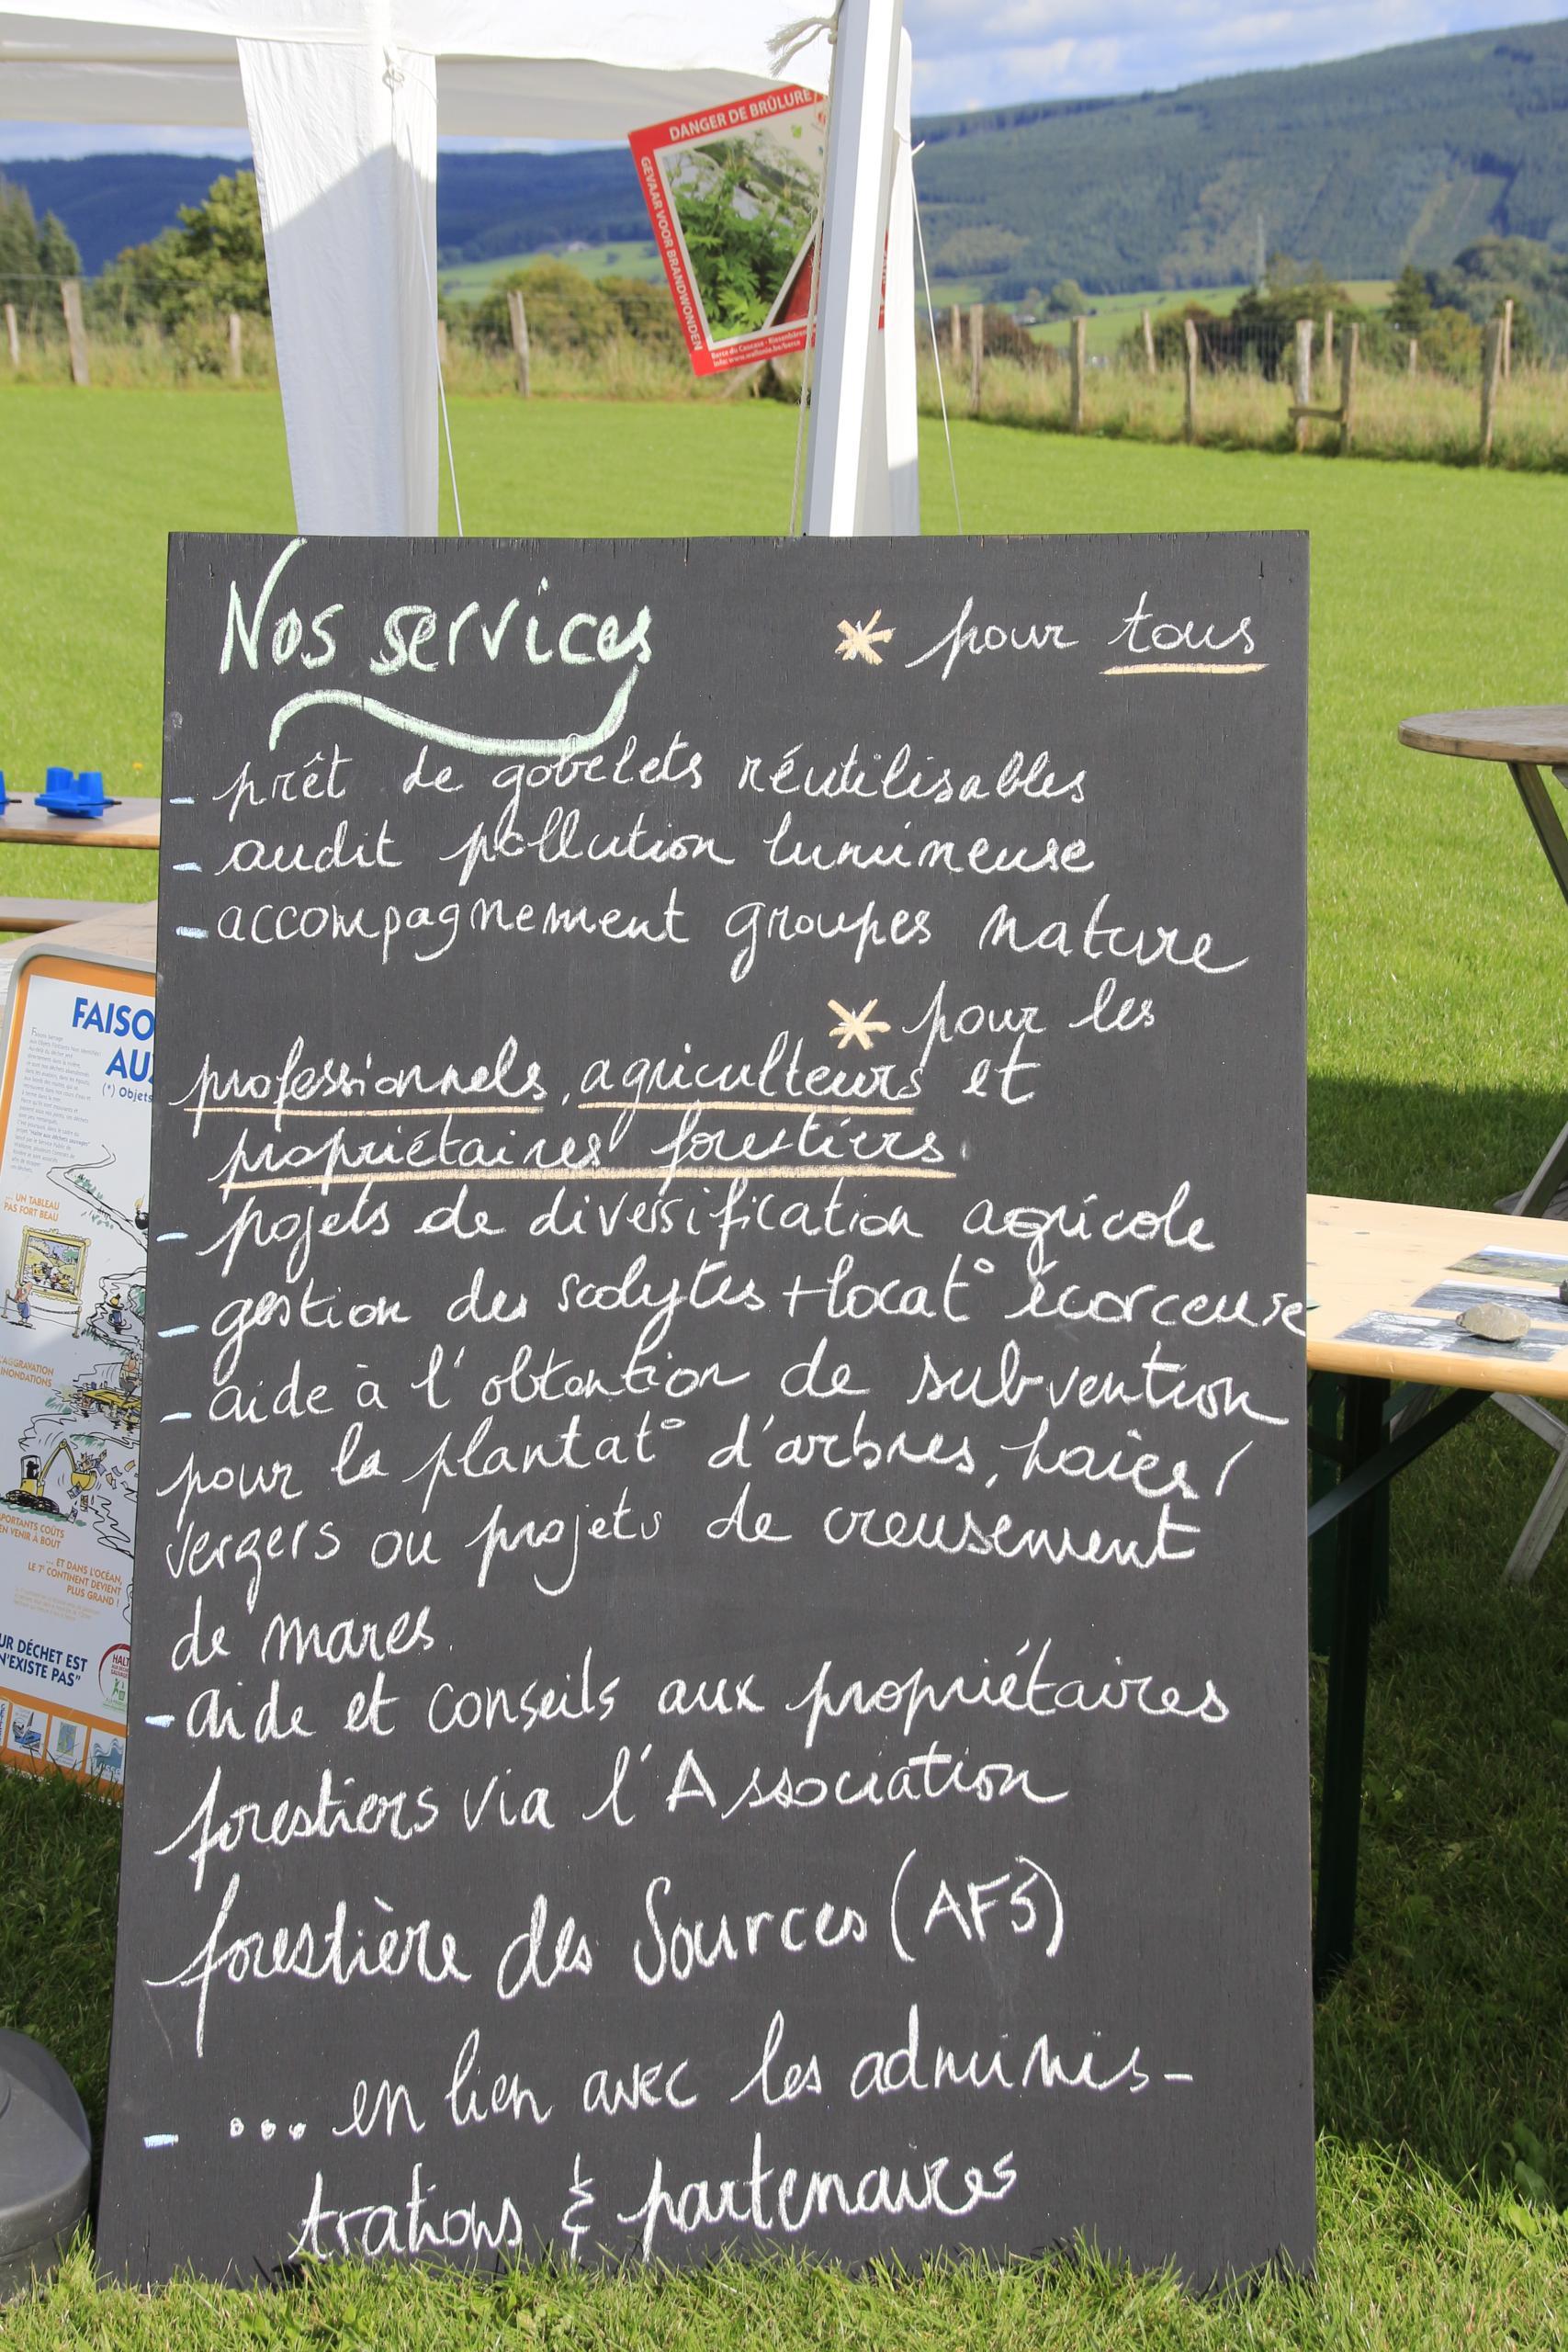 DANGER DE BRÛLURE
GEVAAR VOOR BRANDWONDEN
Berce du Caucase - 
Info: www.wallonie.be/berce
Nos services
* pour tous
- prêt de gobelets réutilisables
- audit pollution lumineuse
- accompagnement groupes nature
* pour les
professionnels, agriculteurs et
propriétaires forestiers.
- pojets de diversification agricole
- gestion des scolytes + locat° écorceuse
- aide à l'obtention de subvention
pour la plantat° d'arbres, haies/
vergers ou projets de creusement
de mares.
- aide et conseils aux propriétaires
forestiers via l'Association
forestière des Sources (AFS)
- ... en lien avec les adminis-
trations & partenaires
FAISO
AU
(*) Objets
... UN TABLEAU
PAS FORT BEAU
L'AGGRAVATION
INONDATIONS
PORTANTS COÛTS
EN VENIR À BOUT
... ET DANS L'OCÉAN,
LE 7e CONTINENT DEVIENT
PLUS GRAND !
UR DÉCHET EST
N'EXISTE PAS"
HALT